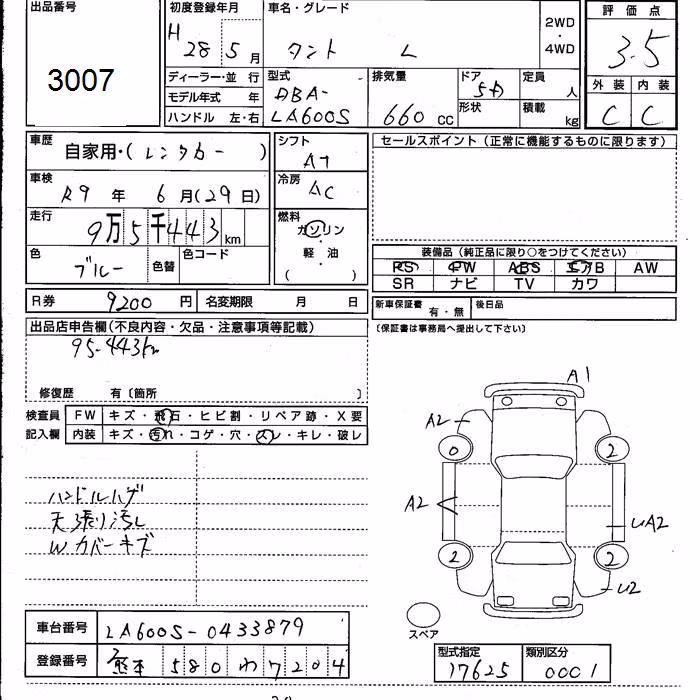 出品番号
3007
初度登録年月
H 28 5 月
車名・グレード
タント L
2WD
・
4WD
評価点
3.5
外装 内装
C C
ディーラー・並 行
モデル年式 年
ハンドル 左・右
型式
DBA-
LA600S
排気量
660 cc
ドア
5D
形状
定員
人
積載
kg
車歴
自家用・(レンタカー)
車検
R9 年 6 月(29日)
走行
9万5千443km
色
ブルー
色替
色コード
シフト
AT
冷房
AC
燃料
ガソリン
・
軽・油
( )
セールスポイント(正常に機能するものに限ります)
装備品(純正品に限り○をつけてください)
PS PW ABS エアB AW
SR ナビ TV カワ
R券 9200 円 名変期限 月 日
新車保証書 有・無 後日品
(保証書は事務局へ提出して下さい)
出品店申告欄(不良内容・欠品・注意事項等記載)
95-443km
修復歴 有〔箇所 〕
検査員
記入欄
FW キズ・飛石・ヒビ割・リペア跡・X要
内装 キズ・汚れ・コゲ・穴・スレ・キレ・破レ
ハンドルハゲ
天張り汚レ
Wカバーキズ
A1
A2
0 2
A2
UA2
2 2
U2
スペア
車台番号 LA600S-0433879
登録番号 熊本 580 わ 7204
型式指定 類別区分
17625 0001